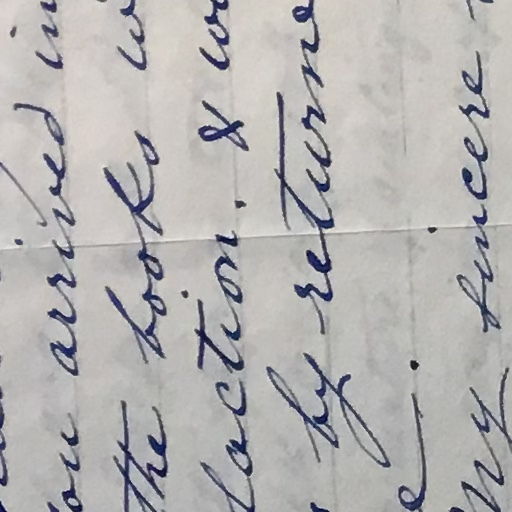 ou arrived in
the books w
action. & wo
by returne
e.
My sincere